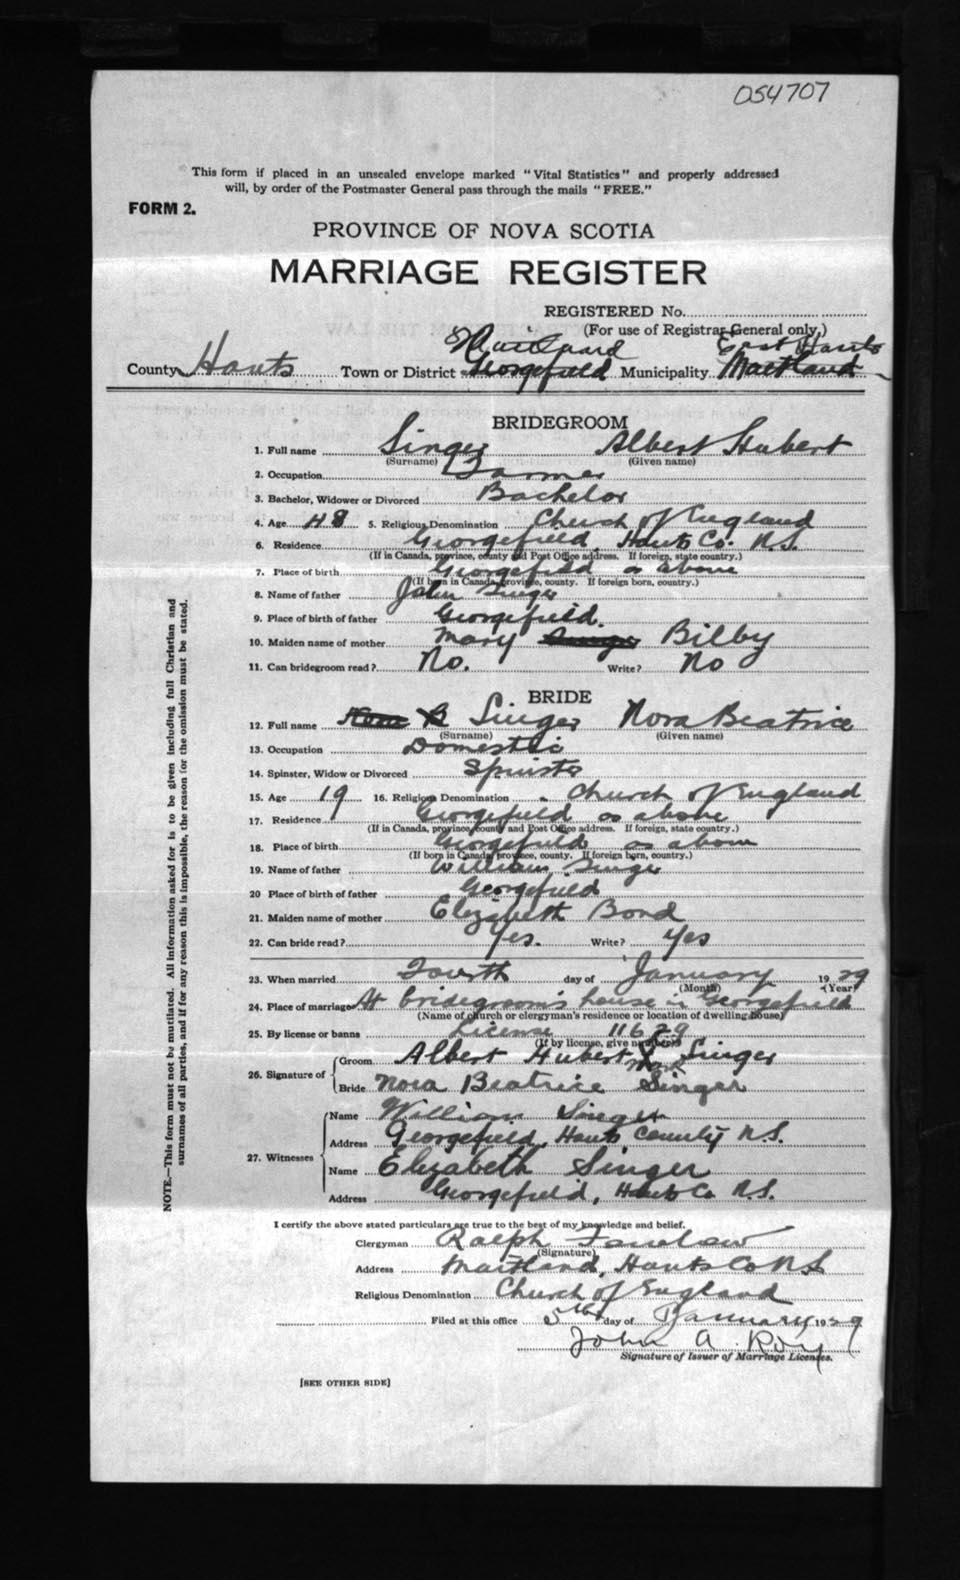 054707
This form if placed in an unsealed envelope marked "Vital Statistics" and properly addressed
will, by order of the Postmaster General pass through the mails "FREE."
FORM 2.
PROVINCE OF NOVA SCOTIA
MARRIAGE REGISTER
REGISTERED No.
(For use of Registrar General only.)
East Hants
County Hants Town or District Georgefield Municipality Maitland
BRIDEGROOM
1. Full name Singer Albert Hubert
(Surname) (Given name)
2. Occupation Farmer
3. Bachelor, Widower or Divorced Bachelor
4. Age 48 5. Religious Denomination Church of England
6. Residence Georgefield, Hants Co. N.S.
(If in Canada, province, county and Post Office address. If foreign, state country.)
7. Place of birth Georgefield as above
(If born in Canada, province, county. If foreign born, country.)
8. Name of father John Singer
9. Place of birth of father Georgefield.
10. Maiden name of mother Mary Singer Bilby
11. Can bridegroom read? No. Write? No
BRIDE
12. Full name Nora B Singer Nora Beatrice
(Surname) (Given name)
13. Occupation Domestic
14. Spinster, Widow or Divorced Spinster
15. Age 19 16. Religious Denomination Church of England
17. Residence Georgefield as above
(If in Canada, province, county and Post Office address. If foreign, state country.)
18. Place of birth Georgefield as above
(If born in Canada, province, county. If foreign born, country.)
19. Name of father William Singer
20 Place of birth of father Georgefield
21. Maiden name of mother Elizabeth Bond
22. Can bride read? Yes. Write? Yes
23. When married Fourth day of January 1929
(Month) (Year)
24. Place of marriage At bridegroom's house in Georgefield
(Name of church or clergyman's residence or location of dwelling house)
25. By license or banns License 11679
(If by license, give number)
26. Signature of Groom Albert Hubert X Singer
mark
Bride Nora Beatrice Singer
27. Witnesses Name William Singer
Address Georgefield, Hants County N.S.
Name Elizabeth Singer
Address Georgefield, Hants Co N.S.
I certify the above stated particulars are true to the best of my knowledge and belief.
Clergyman Ralph Fairlow
(Signature)
Address Maitland, Hants Co N.S
Religious Denomination Church of England
Filed at this office 5th day of January 1929
John A. Roy
Signature of Issuer of Marriage Licenses.
[SEE OTHER SIDE]
NOTE.—This form must not be mutilated. All information asked for is to be given including full Christian and
surnames of all parties, and if for any reason this is impossible, the reason for the omission must be stated.